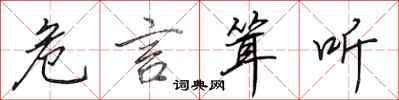 危言耸听
词典网